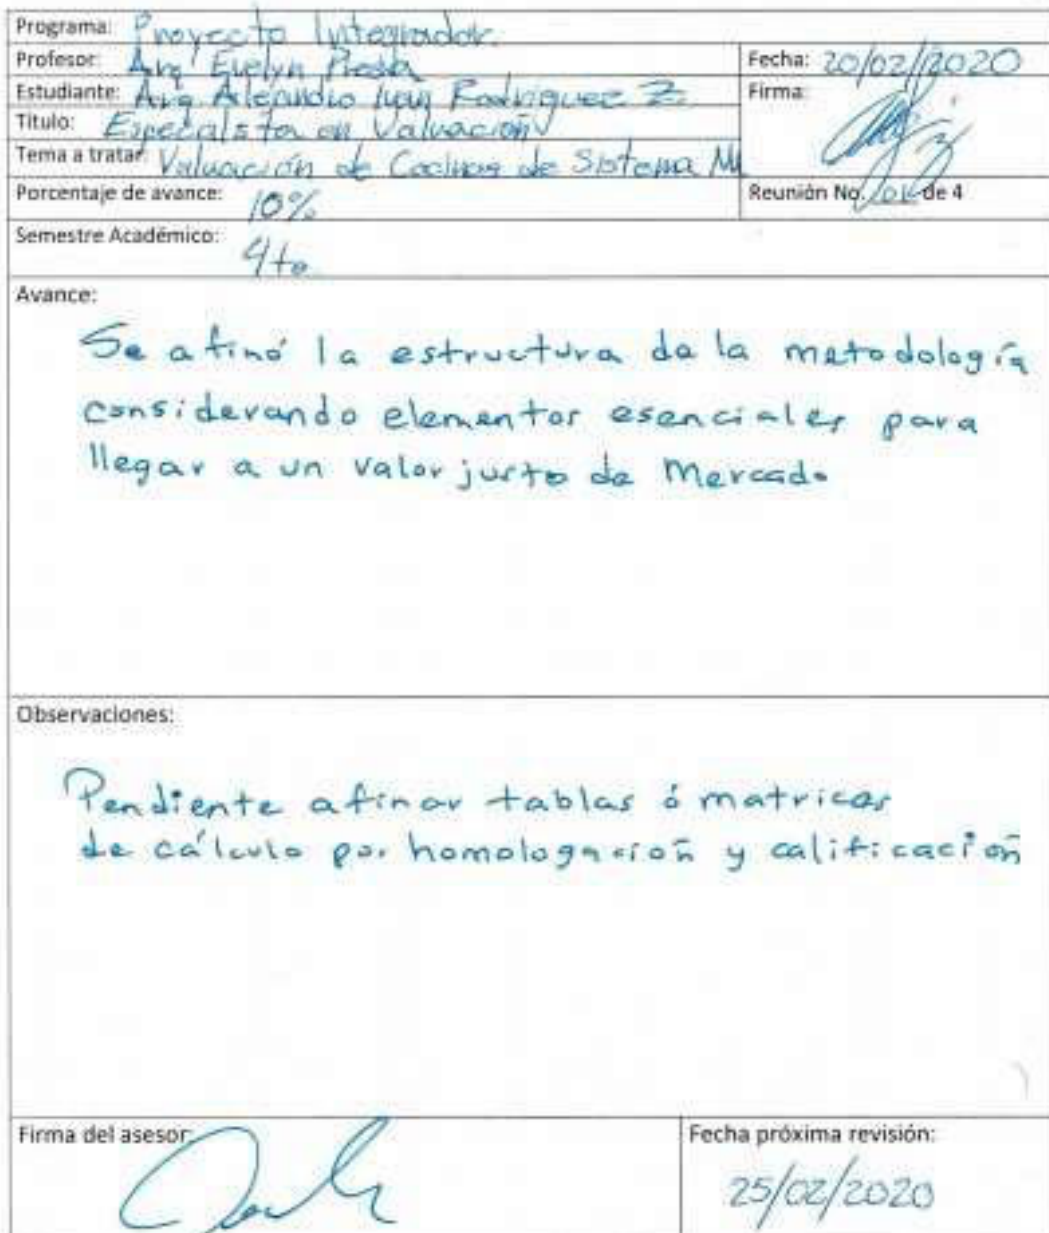 Programa: Proyecto Integrador.
Profesor: Arq Evelyn
Fecha: 20/02/2020
Estudiante: Arq. Alejandro Ivan Rodriguez Z.
Firma:
Título: Especialista en Valuación
Tema a tratar: Valuación de Cocinas de Sistema M
Porcentaje de avance: 10%
Reunión No. 01 de 4
Semestre Académico: 4to
Avance:
Se afinó la estructura de la metodología
considerando elementos esenciales para
llegar a un valor justo de Mercado
Observaciones:
Pendiente afinar tablas ó matrices
de cálculo por homologación y calificación
Firma del asesor:
Fecha próxima revisión:
25/02/2020